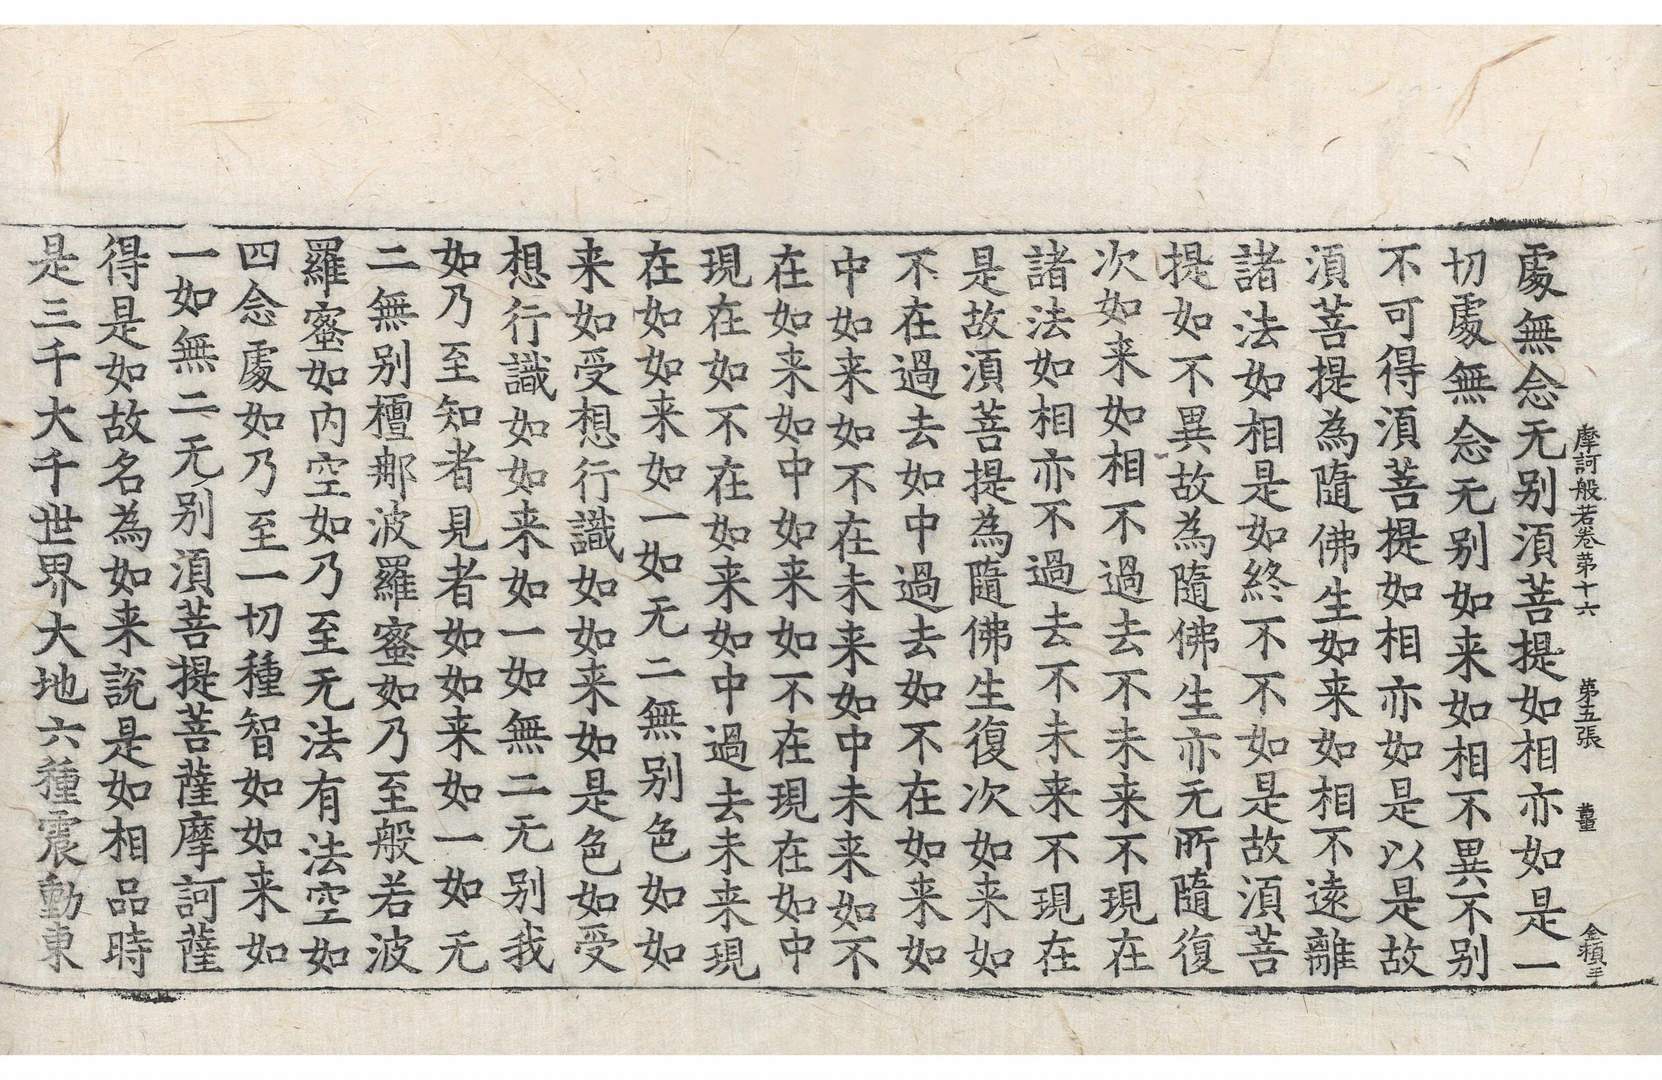 摩訶般若卷第十六 第五張 金積
處無念无别湏菩提如相亦如是一
切處無念无别如来如相不異不别
不可得湏菩提如相亦如是以是故
湏菩提為隨佛生如来如相不遠離
諸法如相是如終不不如是故湏菩
提如不異故為隨佛生亦无所隨復
次如来如相不過去不未来不現在
諸法如相亦不過去不未来不現在
是故湏菩提為隨佛生復次如来如
不在過去如中過去如不在如来如
中如来如不在未来如中未来如不
在如来如中如来如不在現在如中
現在如不在如来如中過去未来現
在如如来如一如无二無别色如如
来如受想行識如如来如是色如受
想行識如如来如一如無二无别我
如乃至知者見者如如来如一如无
二無别檀那波羅蜜如乃至般若波
羅蜜如内空如乃至无法有法空如
四念處如乃至一切種智如如来如
一如無二无别湏菩提菩薩摩訶薩
得是如故名為如来說是如相品時
是三千大千世界大地六種震動東